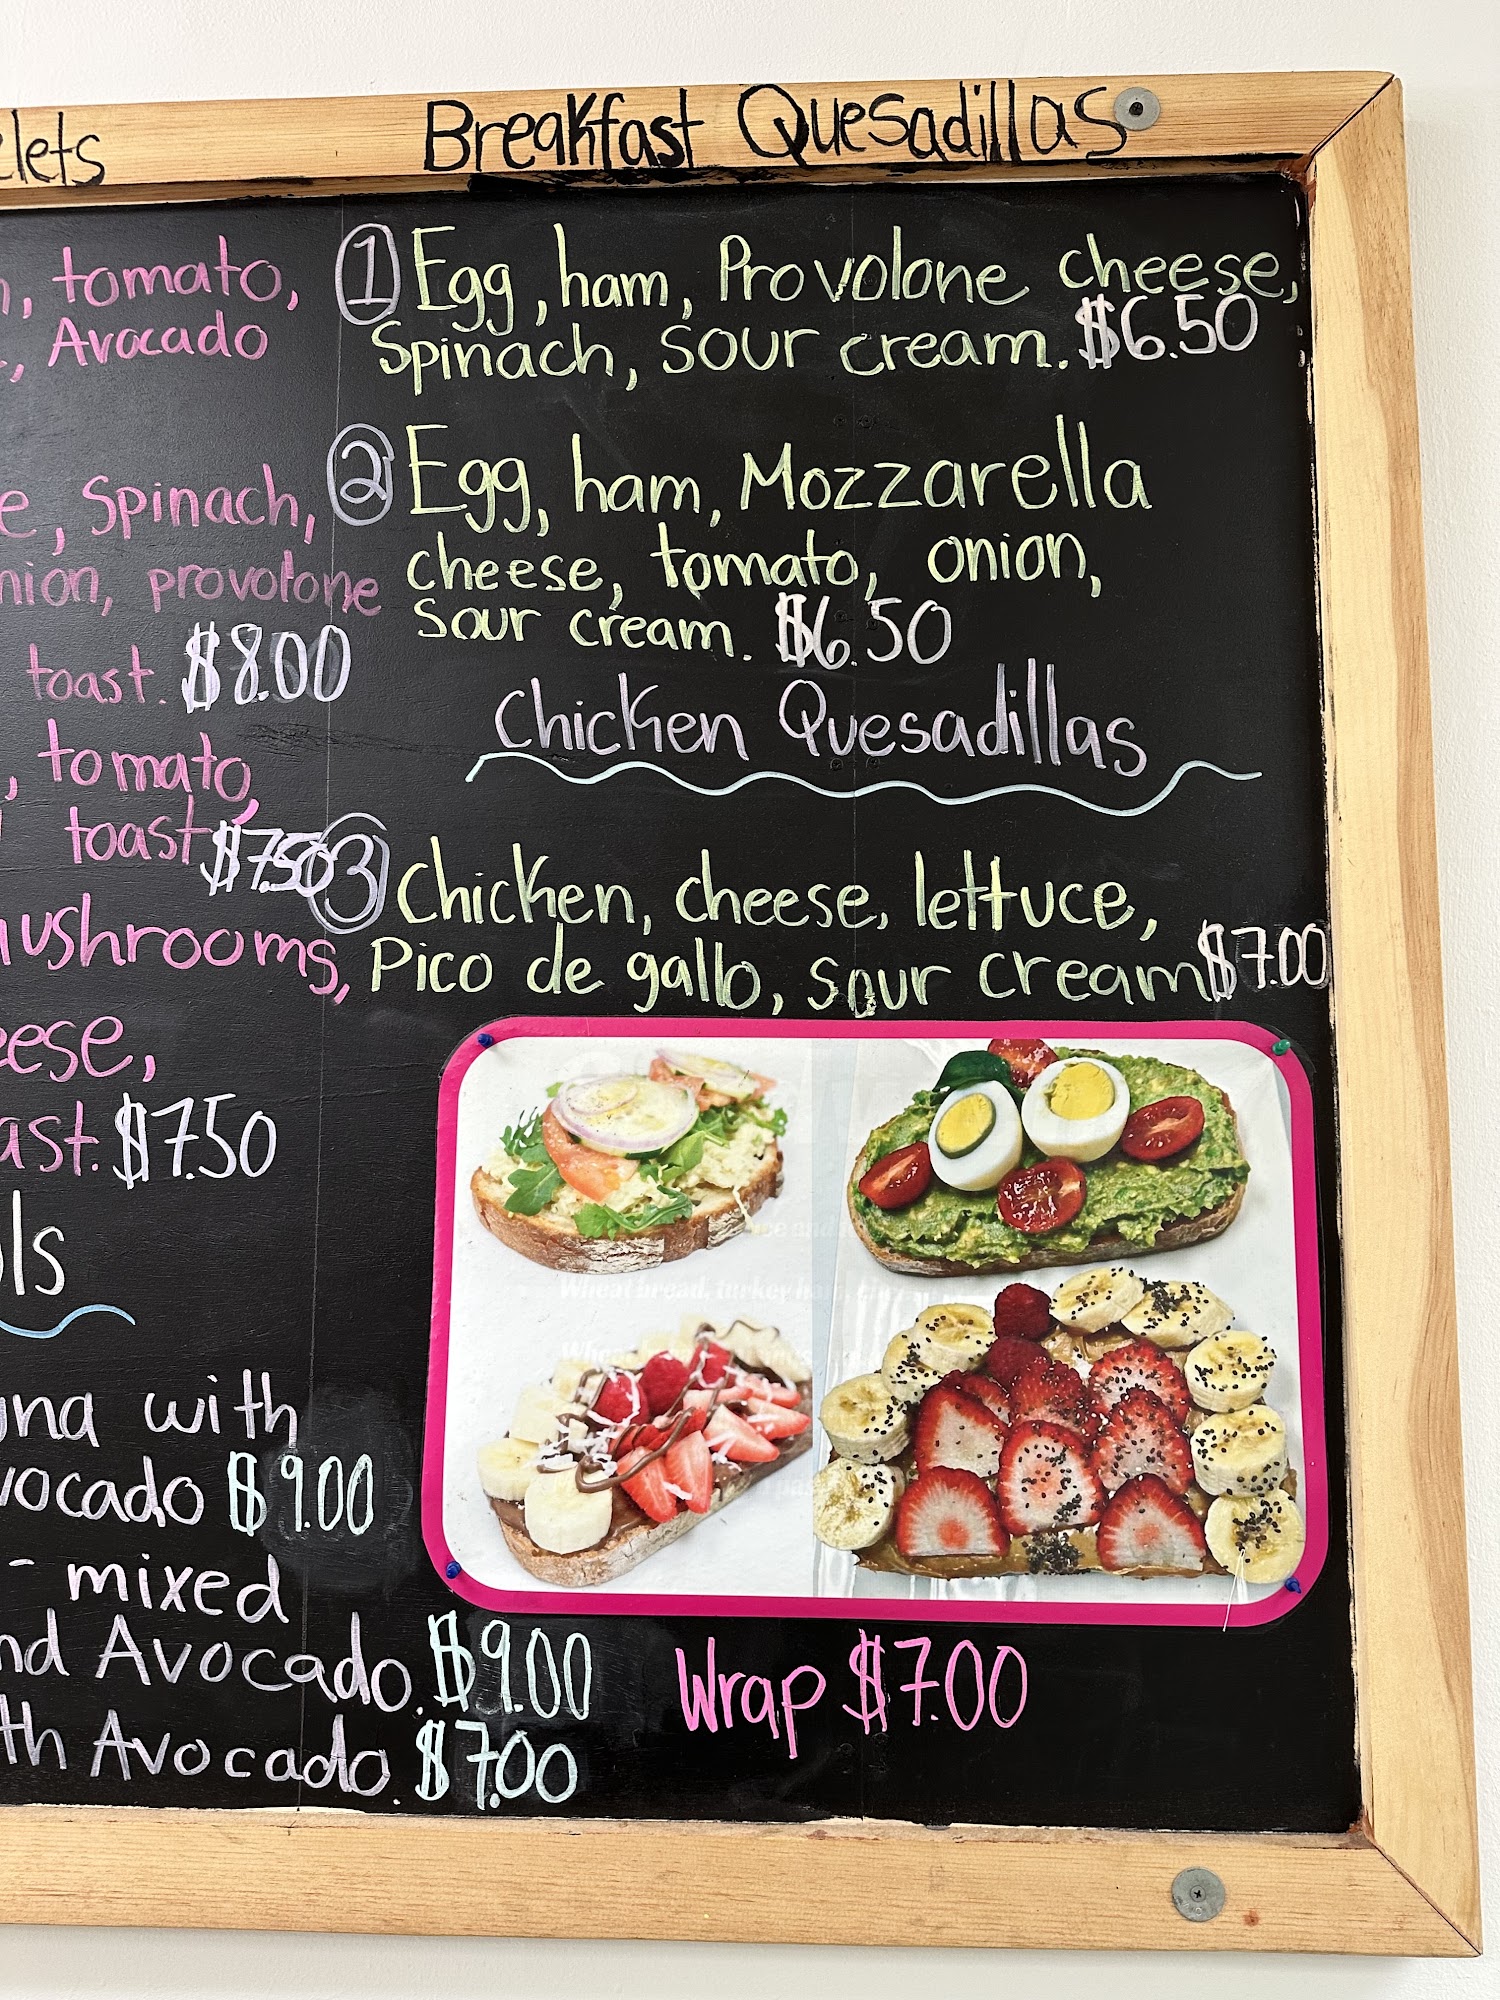 Breakfast Quesadillas
① Egg, ham, Provolone cheese,
Spinach, sour cream. $6.50
② Egg, ham, Mozzarella
cheese, tomato, onion,
sour cream. $6.50
Chicken Quesadillas
③ Chicken, cheese, lettuce,
Pico de gallo, sour cream $7.00
Wrap $7.00
lets
, tomato,
, Avocado
e, Spinach,
nion, provolone
toast. $8.00
, tomato,
toast $7.50
ushrooms,
eese,
ast. $7.50
ls
una with
vocado $9.00
- mixed
nd Avocado. $9.00
th Avocado. $7.00
Wheat bread, turkey ham,